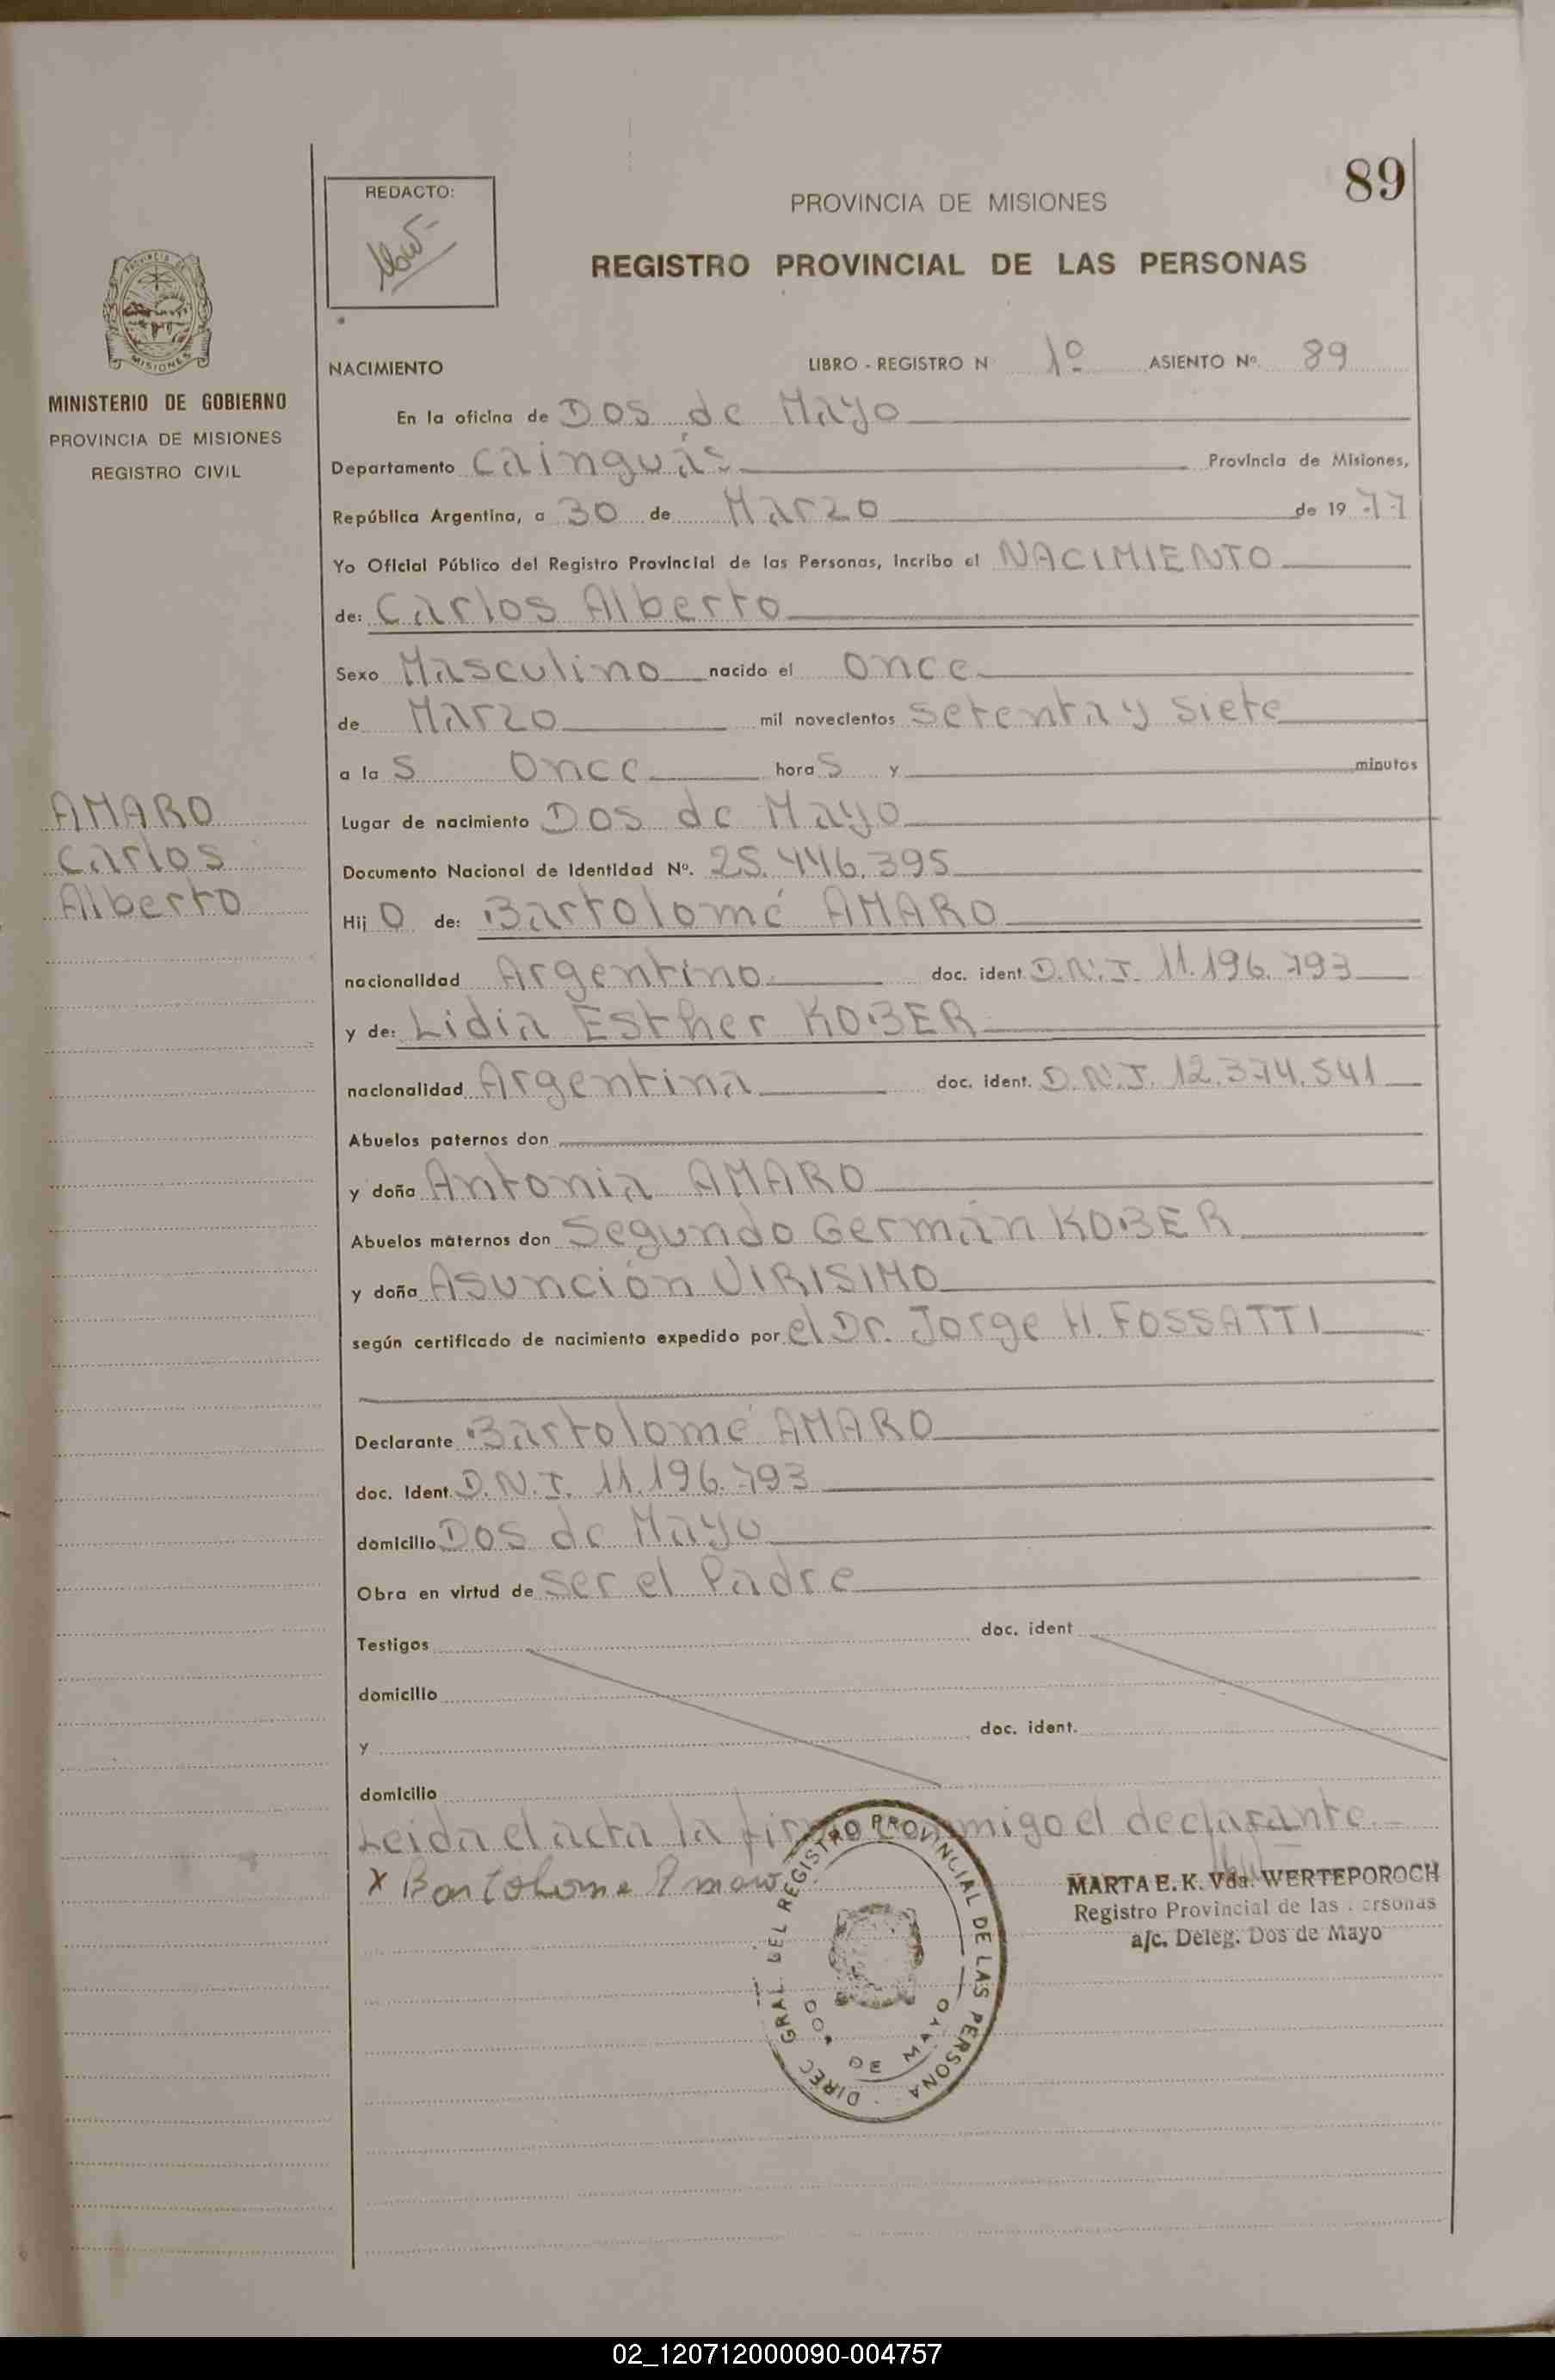 89
REDACTO:
PROVINCIA DE MISIONES
REGISTRO PROVINCIAL DE LAS PERSONAS
PROVINCIA DE MISIONES
MINISTERIO DE GOBIERNO
PROVINCIA DE MISIONES
REGISTRO CIVIL
AMARO
Carlos
Alberto
NACIMIENTO LIBRO - REGISTRO N 1º ASIENTO Nº. 89
En la oficina de Dos de Mayo
Departamento Cainguás Provincia de Misiones,
República Argentina, a 30 de Marzo de 1977
Yo Oficial Público del Registro Provincial de las Personas, Incribo el NACIMIENTO
de: Carlos Alberto
Sexo Masculino nacido el once
de Marzo mil novecientos setenta y siete
a las Once horas y minutos
Lugar de nacimiento Dos de Mayo
Documento Nacional de Identidad Nº. 25.446.395
Hijo de: Bartolomé AMARO
nacionalidad Argentino doc. ident. D.N.I. 11.196.793
y de: Lidia Esther KOBER
nacionalidad Argentina doc. ident. D.N.I. 12.374.541
Abuelos paternos don
y doña Antonia AMARO
Abuelos maternos don Segundo Germán KOBER
y doña Asunción VIRISIMO
según certificado de nacimiento expedido por el Dr. Jorge H. FOSSATTI
Declarante Bartolomé AMARO
doc. Ident. D.N.I. 11.196.793
domicilio Dos de Mayo
Obra en virtud de ser el Padre
Testigos doc. ident
domicilio
y doc. ident.
domicilio
Leida el acta la firma conmigo el declarante.-
x Bartolome Amaro
DIREC GRAL. DEL REGISTRO PROVINCIAL DE LAS PERSONA
DOS DE MAYO
MARTA E. K. Vda. WERTEPOROCH
Registro Provincial de las ersonas
a/c. Deleg. Dos de Mayo
02_120712000090-004757